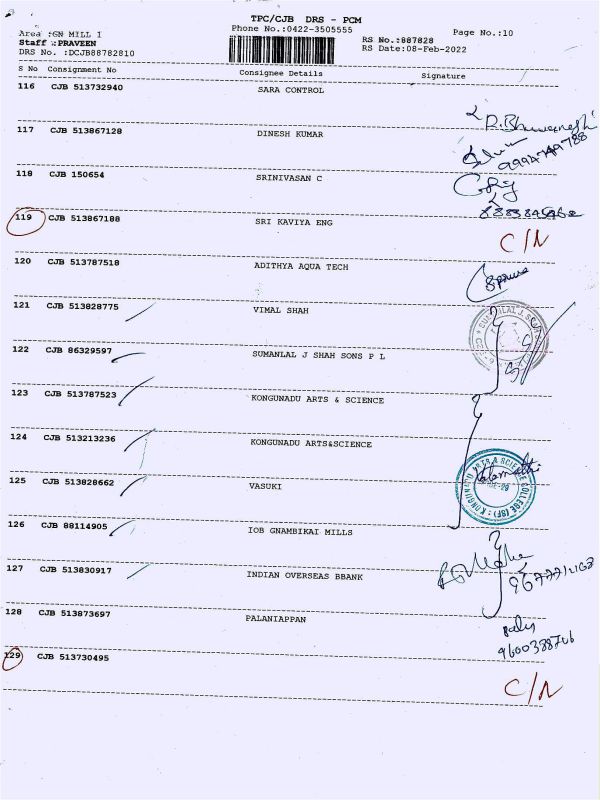 TPC/CJB DRS - PCM
Area :GN MILL I
Phone No.:0422-3505555
Page No.:10
Staff :PRAVEEN
RS No.:887828
DRS No. :DCJB88782810
RS Date:08-Feb-2022
S No Consignment No Consignee Details Signature
116 CJB 513732940 SARA CONTROL
117 CJB 513867128 DINESH KUMAR
118 CJB 150654 SRINIVASAN C
119 CJB 513867188 SRI KAVIYA ENG
C/N
120 CJB 513787518 ADITHYA AQUA TECH
121 CJB 513828775 VIMAL SHAH
122 CJB 86329597 SUMANLAL J SHAH SONS P L
123 CJB 513787523 KONGUNADU ARTS & SCIENCE
124 CJB 513213236 KONGUNADU ARTS&SCIENCE
125 CJB 513828662 VASUKI
126 CJB 88114905 IOB GNAMBIKAI MILLS
127 CJB 513830917 INDIAN OVERSEAS BBANK
128 CJB 513873697 PALANIAPPAN
129 CJB 513730495
C/N